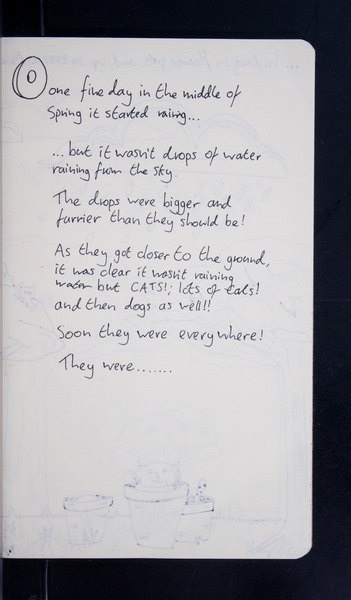 O
one fine day in the middle of
Spring it started raining...
... but it wasn't drops of water
raining from the sky.
The drops were bigger and
furrier than they should be!
As they got closer to the ground,
it was clear it wasn't raining
water but CATS!; lots of cats!
and then dogs as well!!
Soon they were everywhere!
They were.......